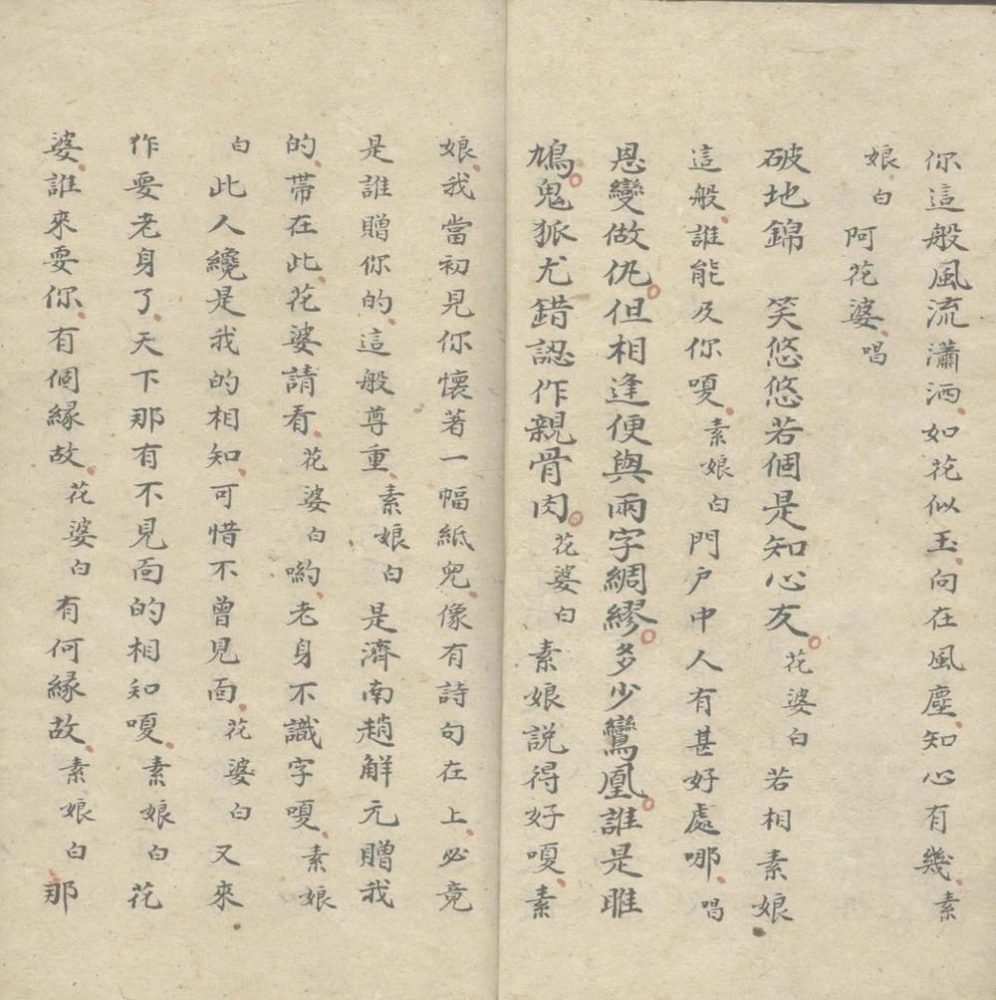 你這般風流瀟洒、如花似玉、向在風塵、知心有幾、素
娘、白 阿花婆、唱
破地錦 笑悠悠若個是知心友。花婆白 若相素娘
這般、誰能及你嗄、素娘白 門戶中人有甚好處哪、唱
恩變做仇。但相逢便與兩字綢繆。多少鸞凰。誰是雎
鳩。鬼狐尤錯認作親骨肉。花婆白 素娘説得好嗄、素
娘、我當初見你懷著一幅紙兒、像有詩句在上、必竟
是誰贈你的、這般尊重、素娘白 是濟南趙解元贈我
的、帶在此、花婆請看、花婆白 喲、老身不識字嗄、素娘
白 此人纔是我的相知、可惜不曾見面、花婆白 又來
作耍老身了、天下那有不見面的相知嗄、素娘白 花
婆、誰來耍你、有個緣故、花婆白 有何緣故、素娘白 那